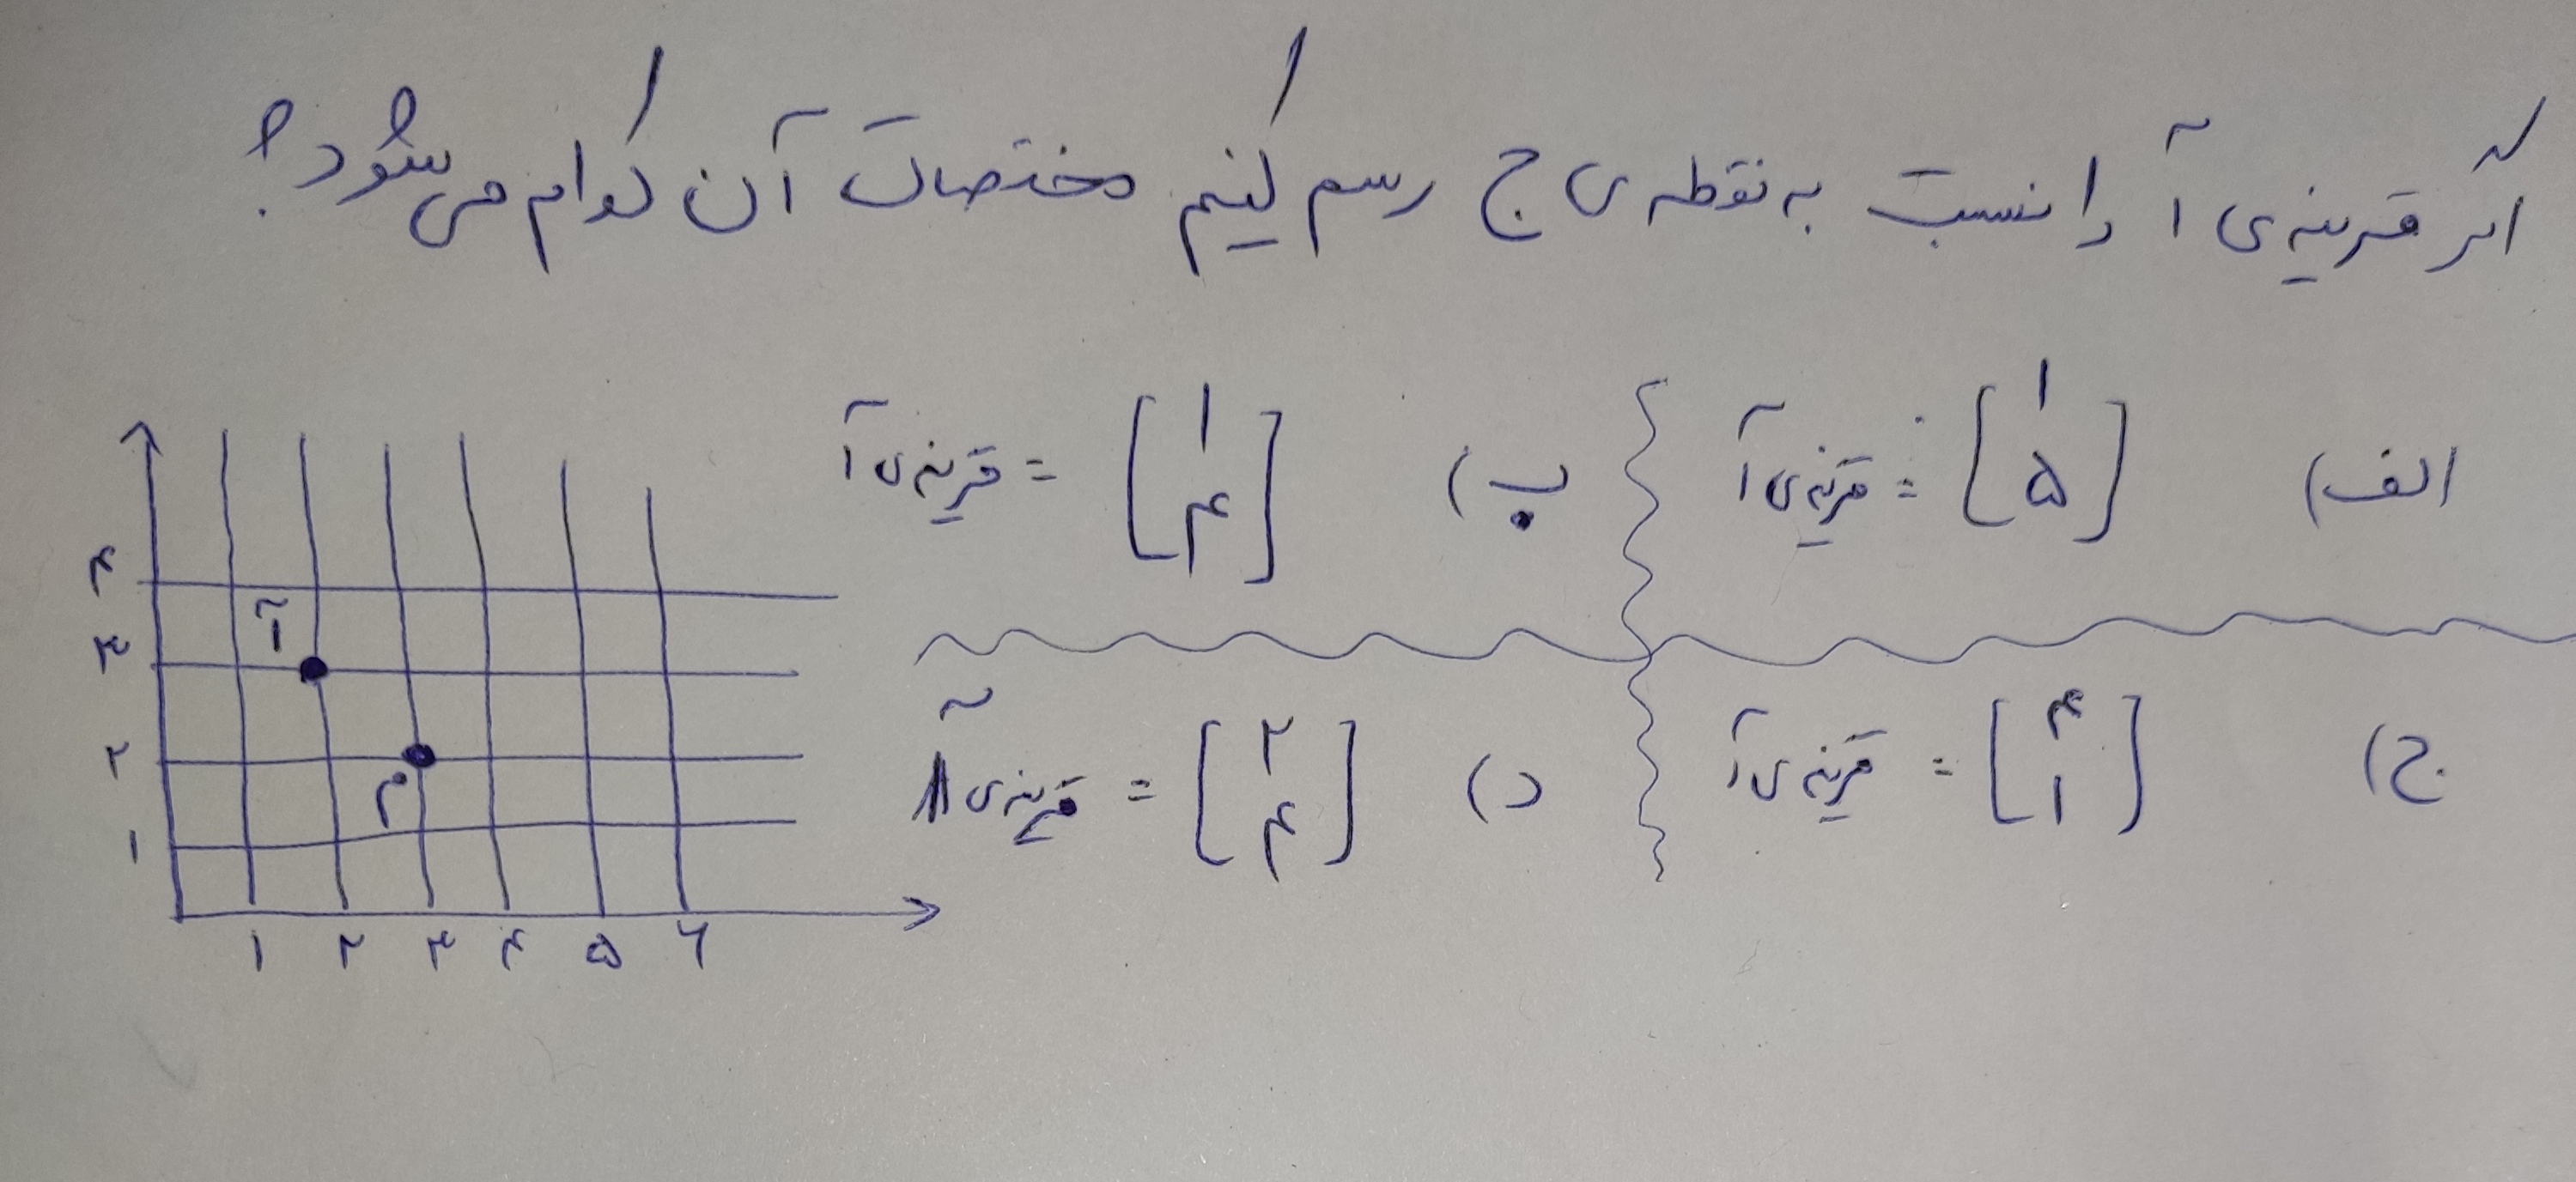 اگر قرینه‌ی آ را نسبت به نقطه‌ی ج رسم کنیم مختصات آن کدام می‌شود؟
الف) [۱ ۵] = قرینه‌ی آ
ب) [۱ ۴] = قرینه‌ی آ
ج) [۴ ۱] = قرینه‌ی آ
د) [۲ ۴] = قرینه‌ی آ
۴
آ
۳
۲
م
۱
۱ ۲ ۳ ۴ ۵ ۶